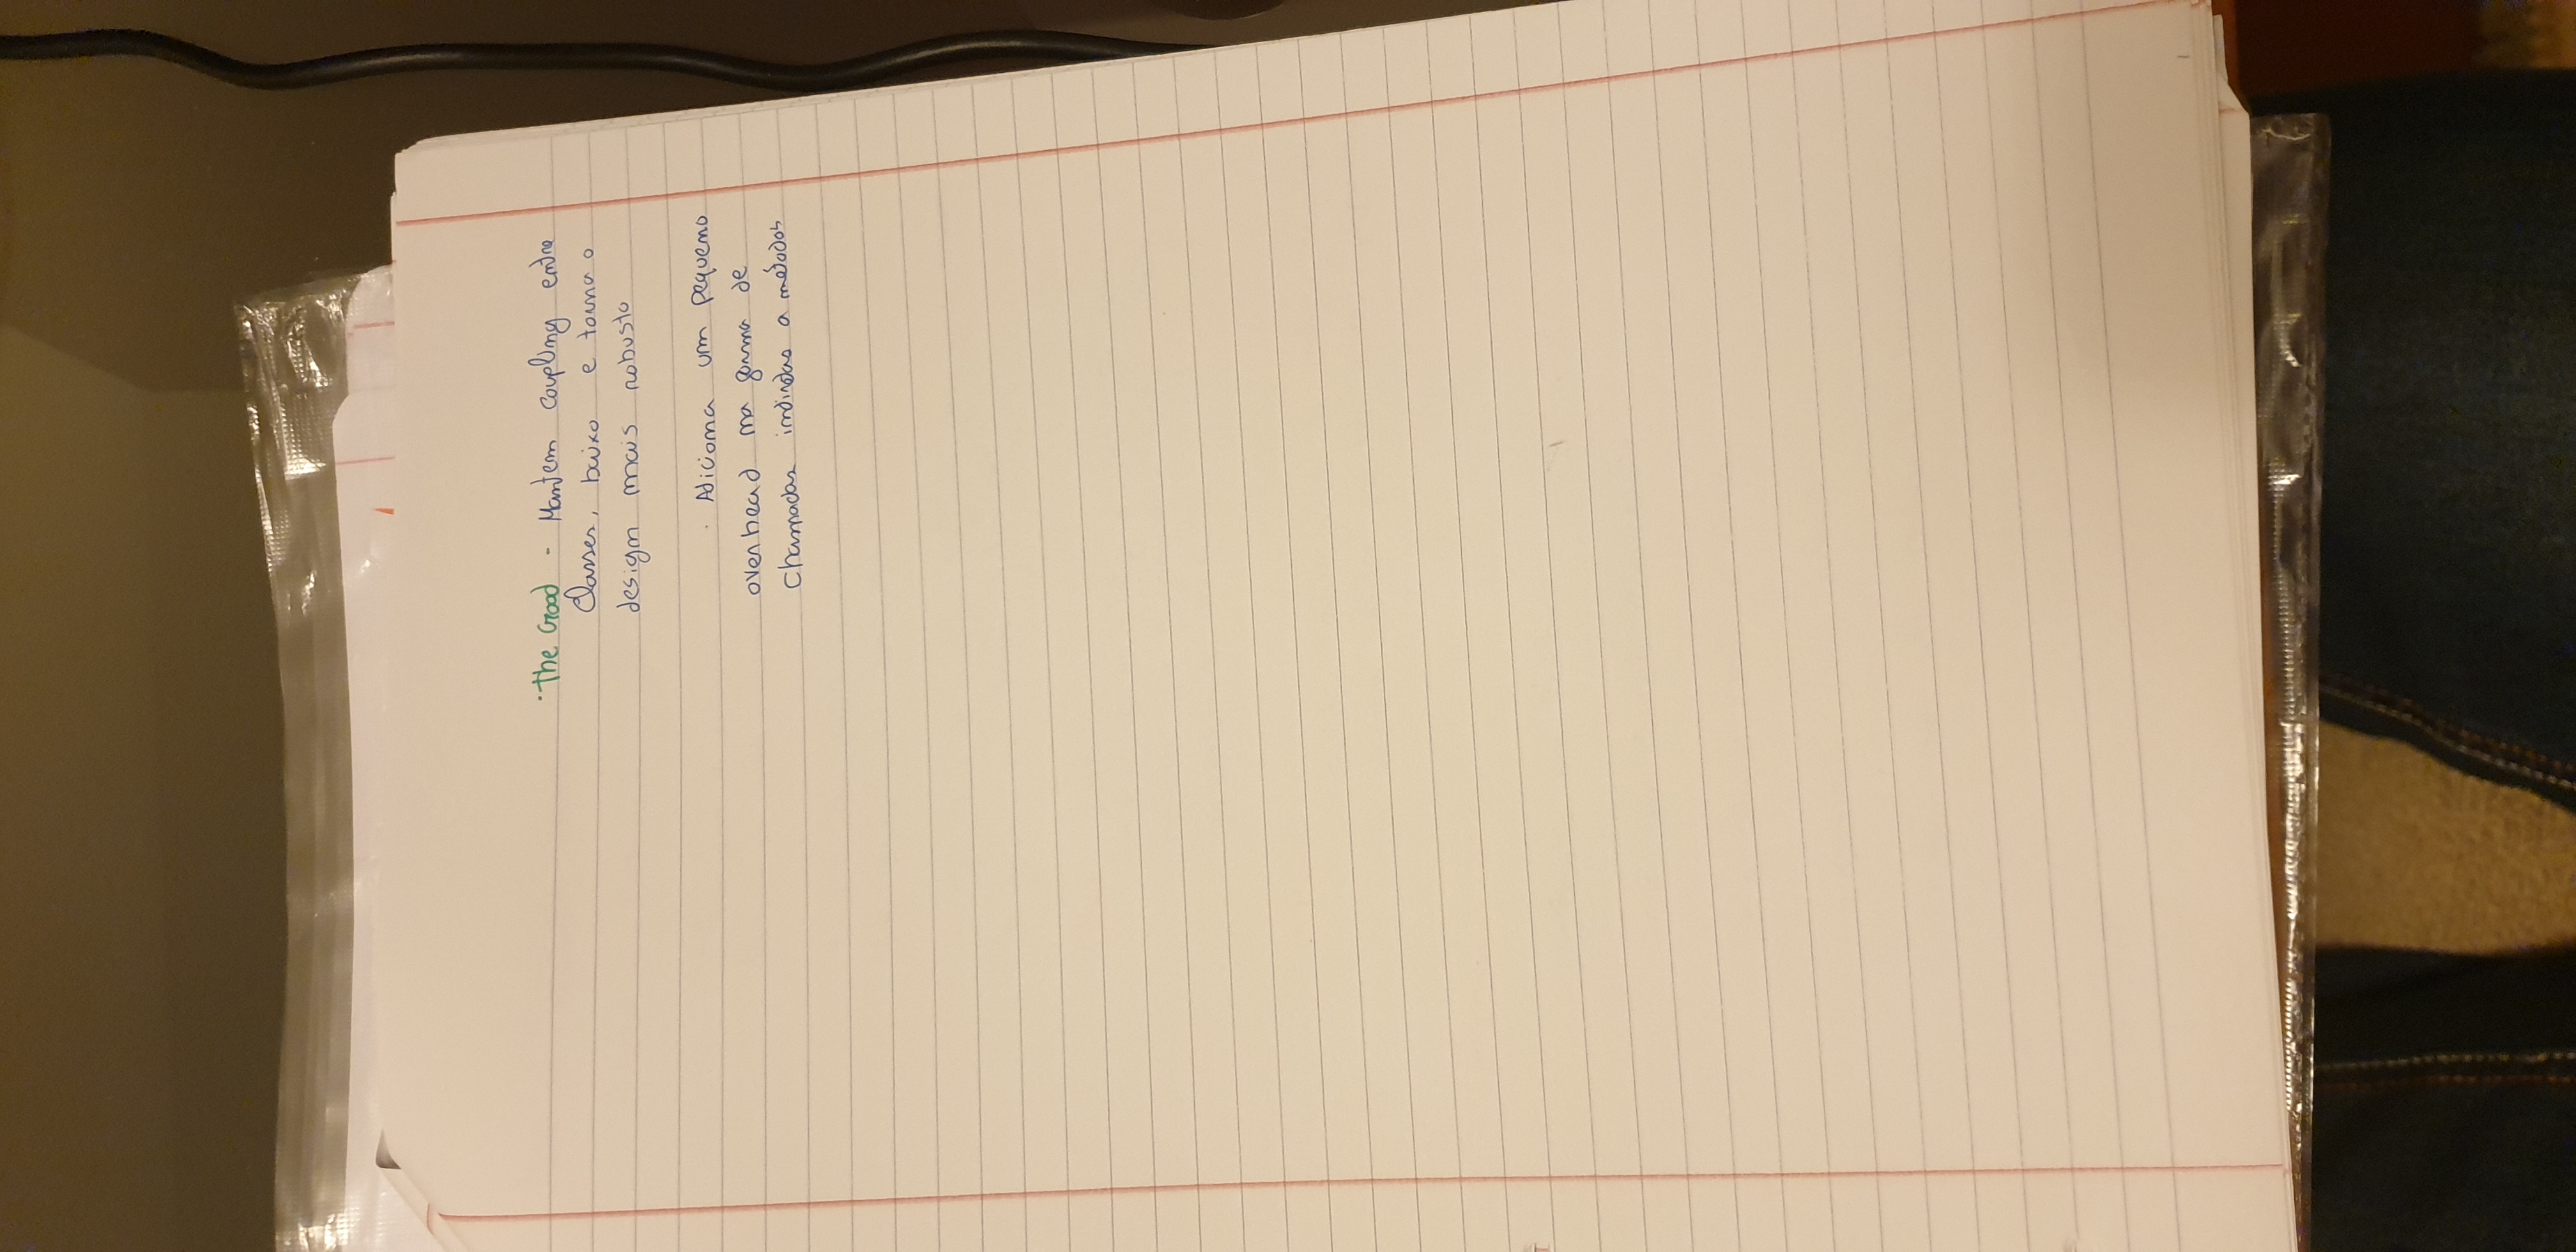 · The Good - Mantem coupling entre
classes, baixo e torna o
design mais robusto
· Adiciona um pequeno
overhead na forma de
chamadas indiretas a métodos